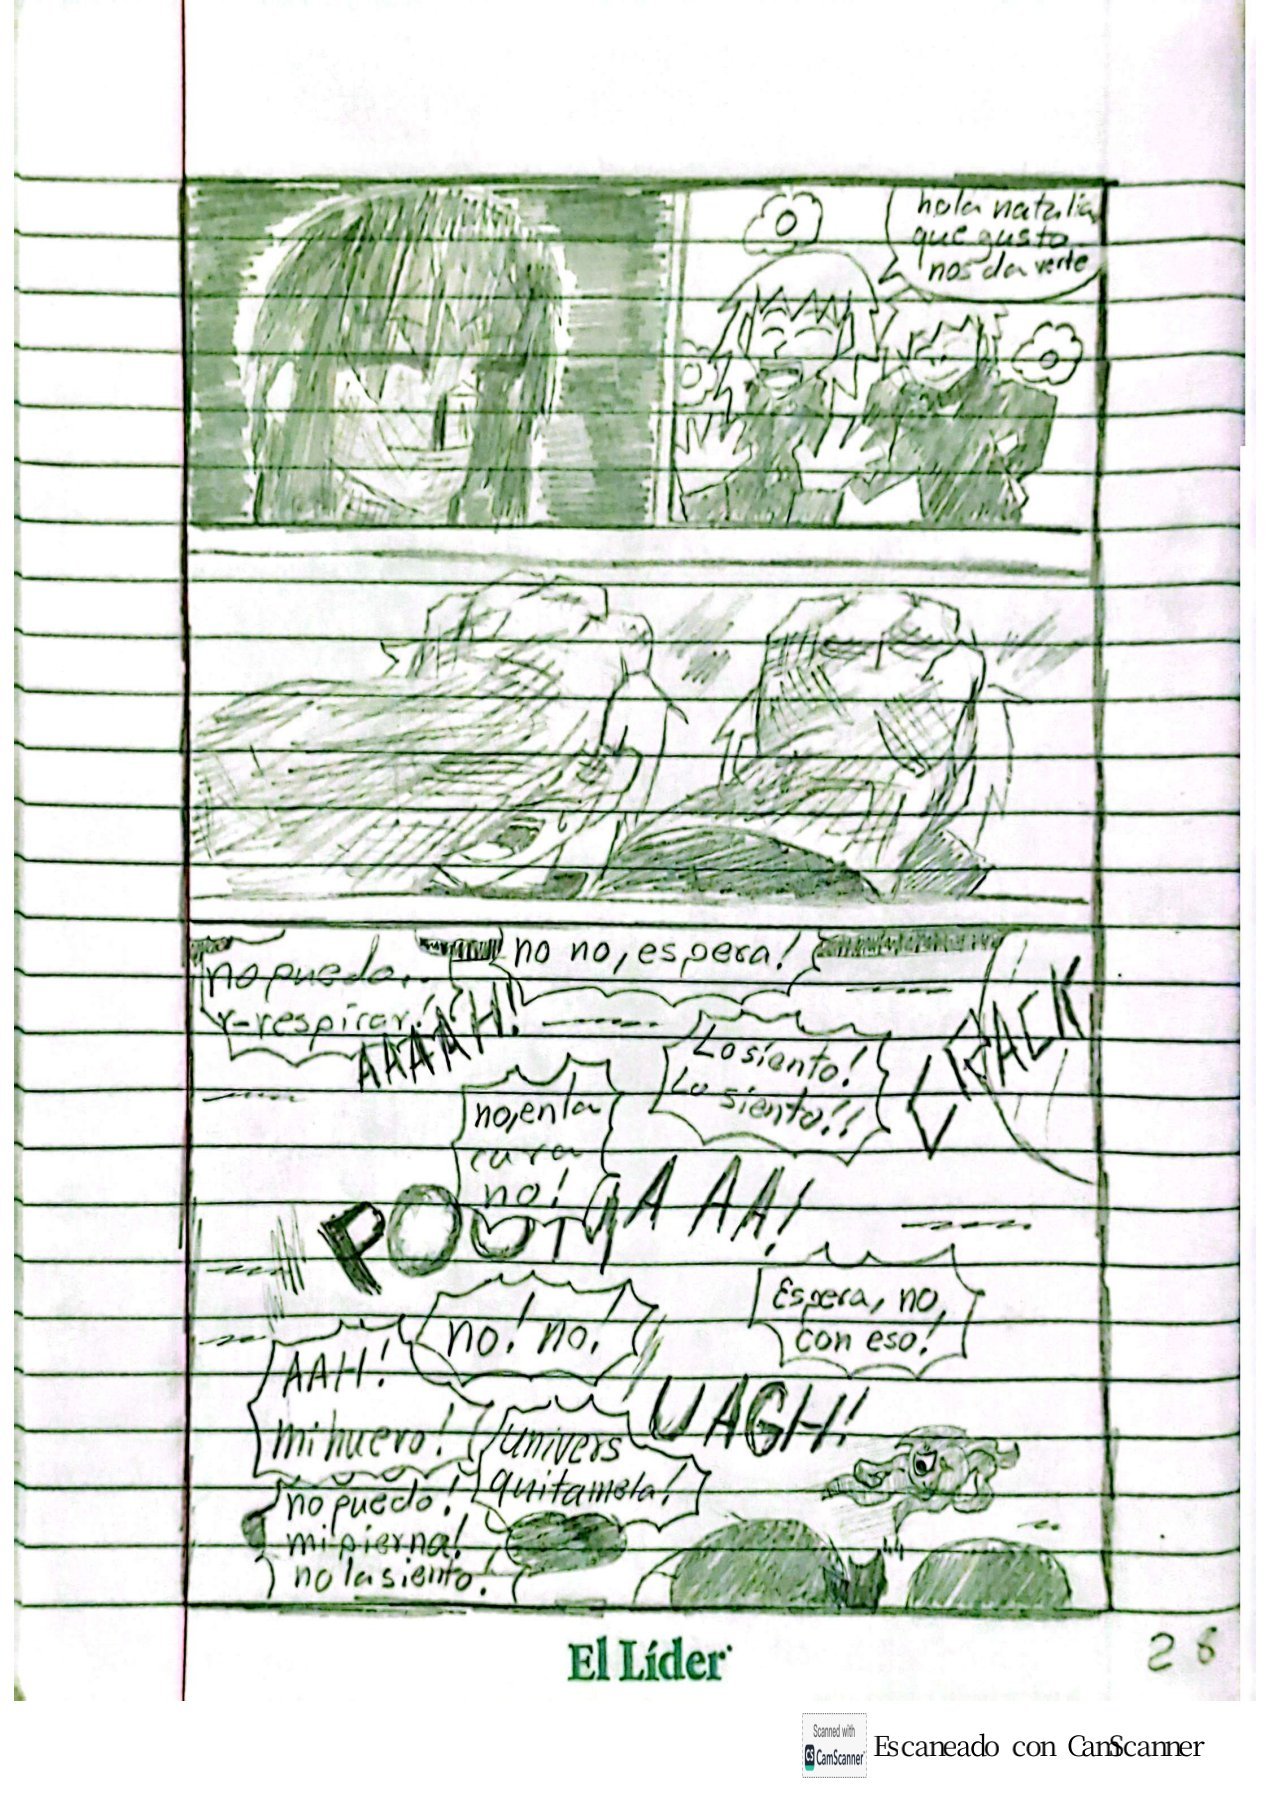 hola natalia
que gusto
nos da verte
no puedo...
r-respirar!
AAAAH!
no no, espera!
CRACK
Lo siento!
Lo siento!!
no, en la
cara
no!
AAAA!
Espera, no,
con eso!
no! no!
AAH!
mi huevo!
UAGH!
univers
quitamela!
no puedo!
mi pierna!
no la siento!
El Líder
28
Scanned with
CS CamScanner
Escaneado con CamScanner